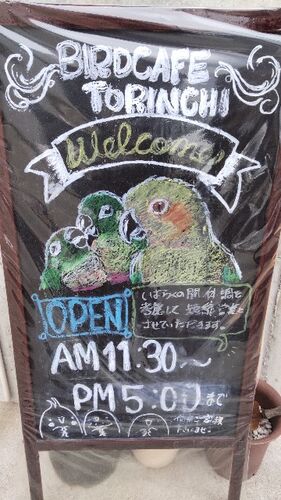 BIRDCAFE
TORINCHI
Welcome!
OPEN
しばらくの間
させていただきます。
AM11.30～
PM5:00まで